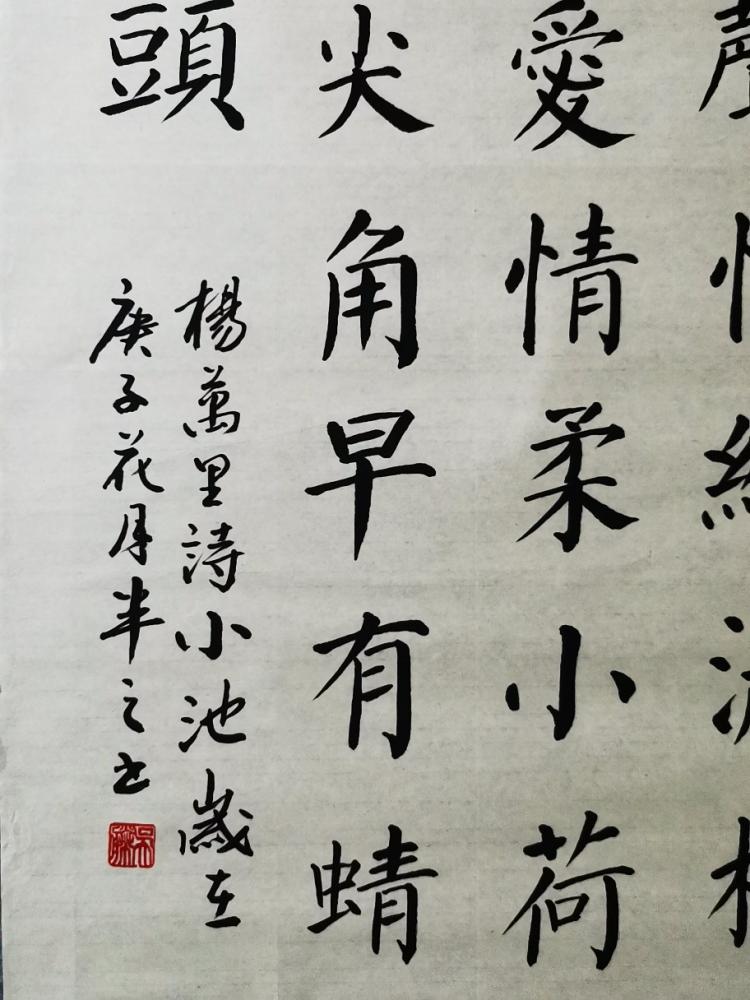 愛情柔小荷
尖角早有蜻
頭
楊萬里詩小池歲在
庚子花月半之书